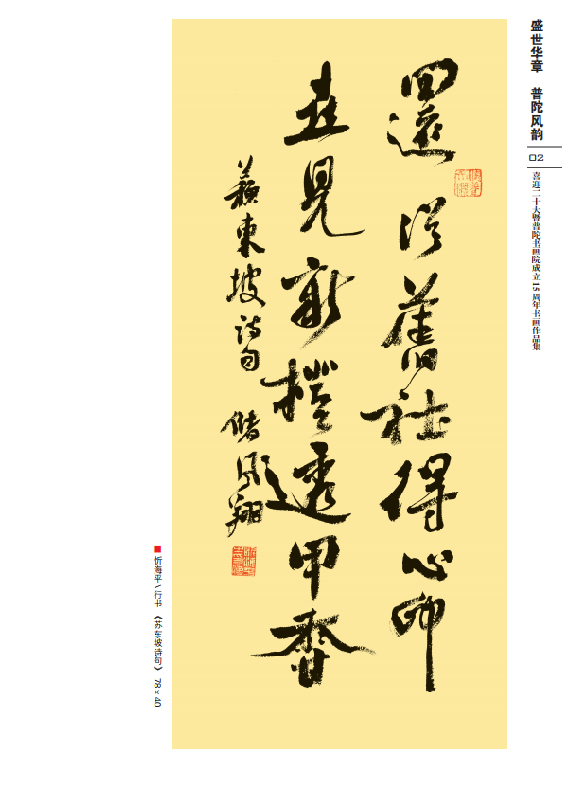 盛世华章 普陀风韵
02
喜迎二十大暨普陀书画院成立15周年书画作品集
還從舊社得心印
喜見新橙透甲香
蘇東坡詩句 儲鳳翔
忻海平\行书《苏东坡诗句》78×40